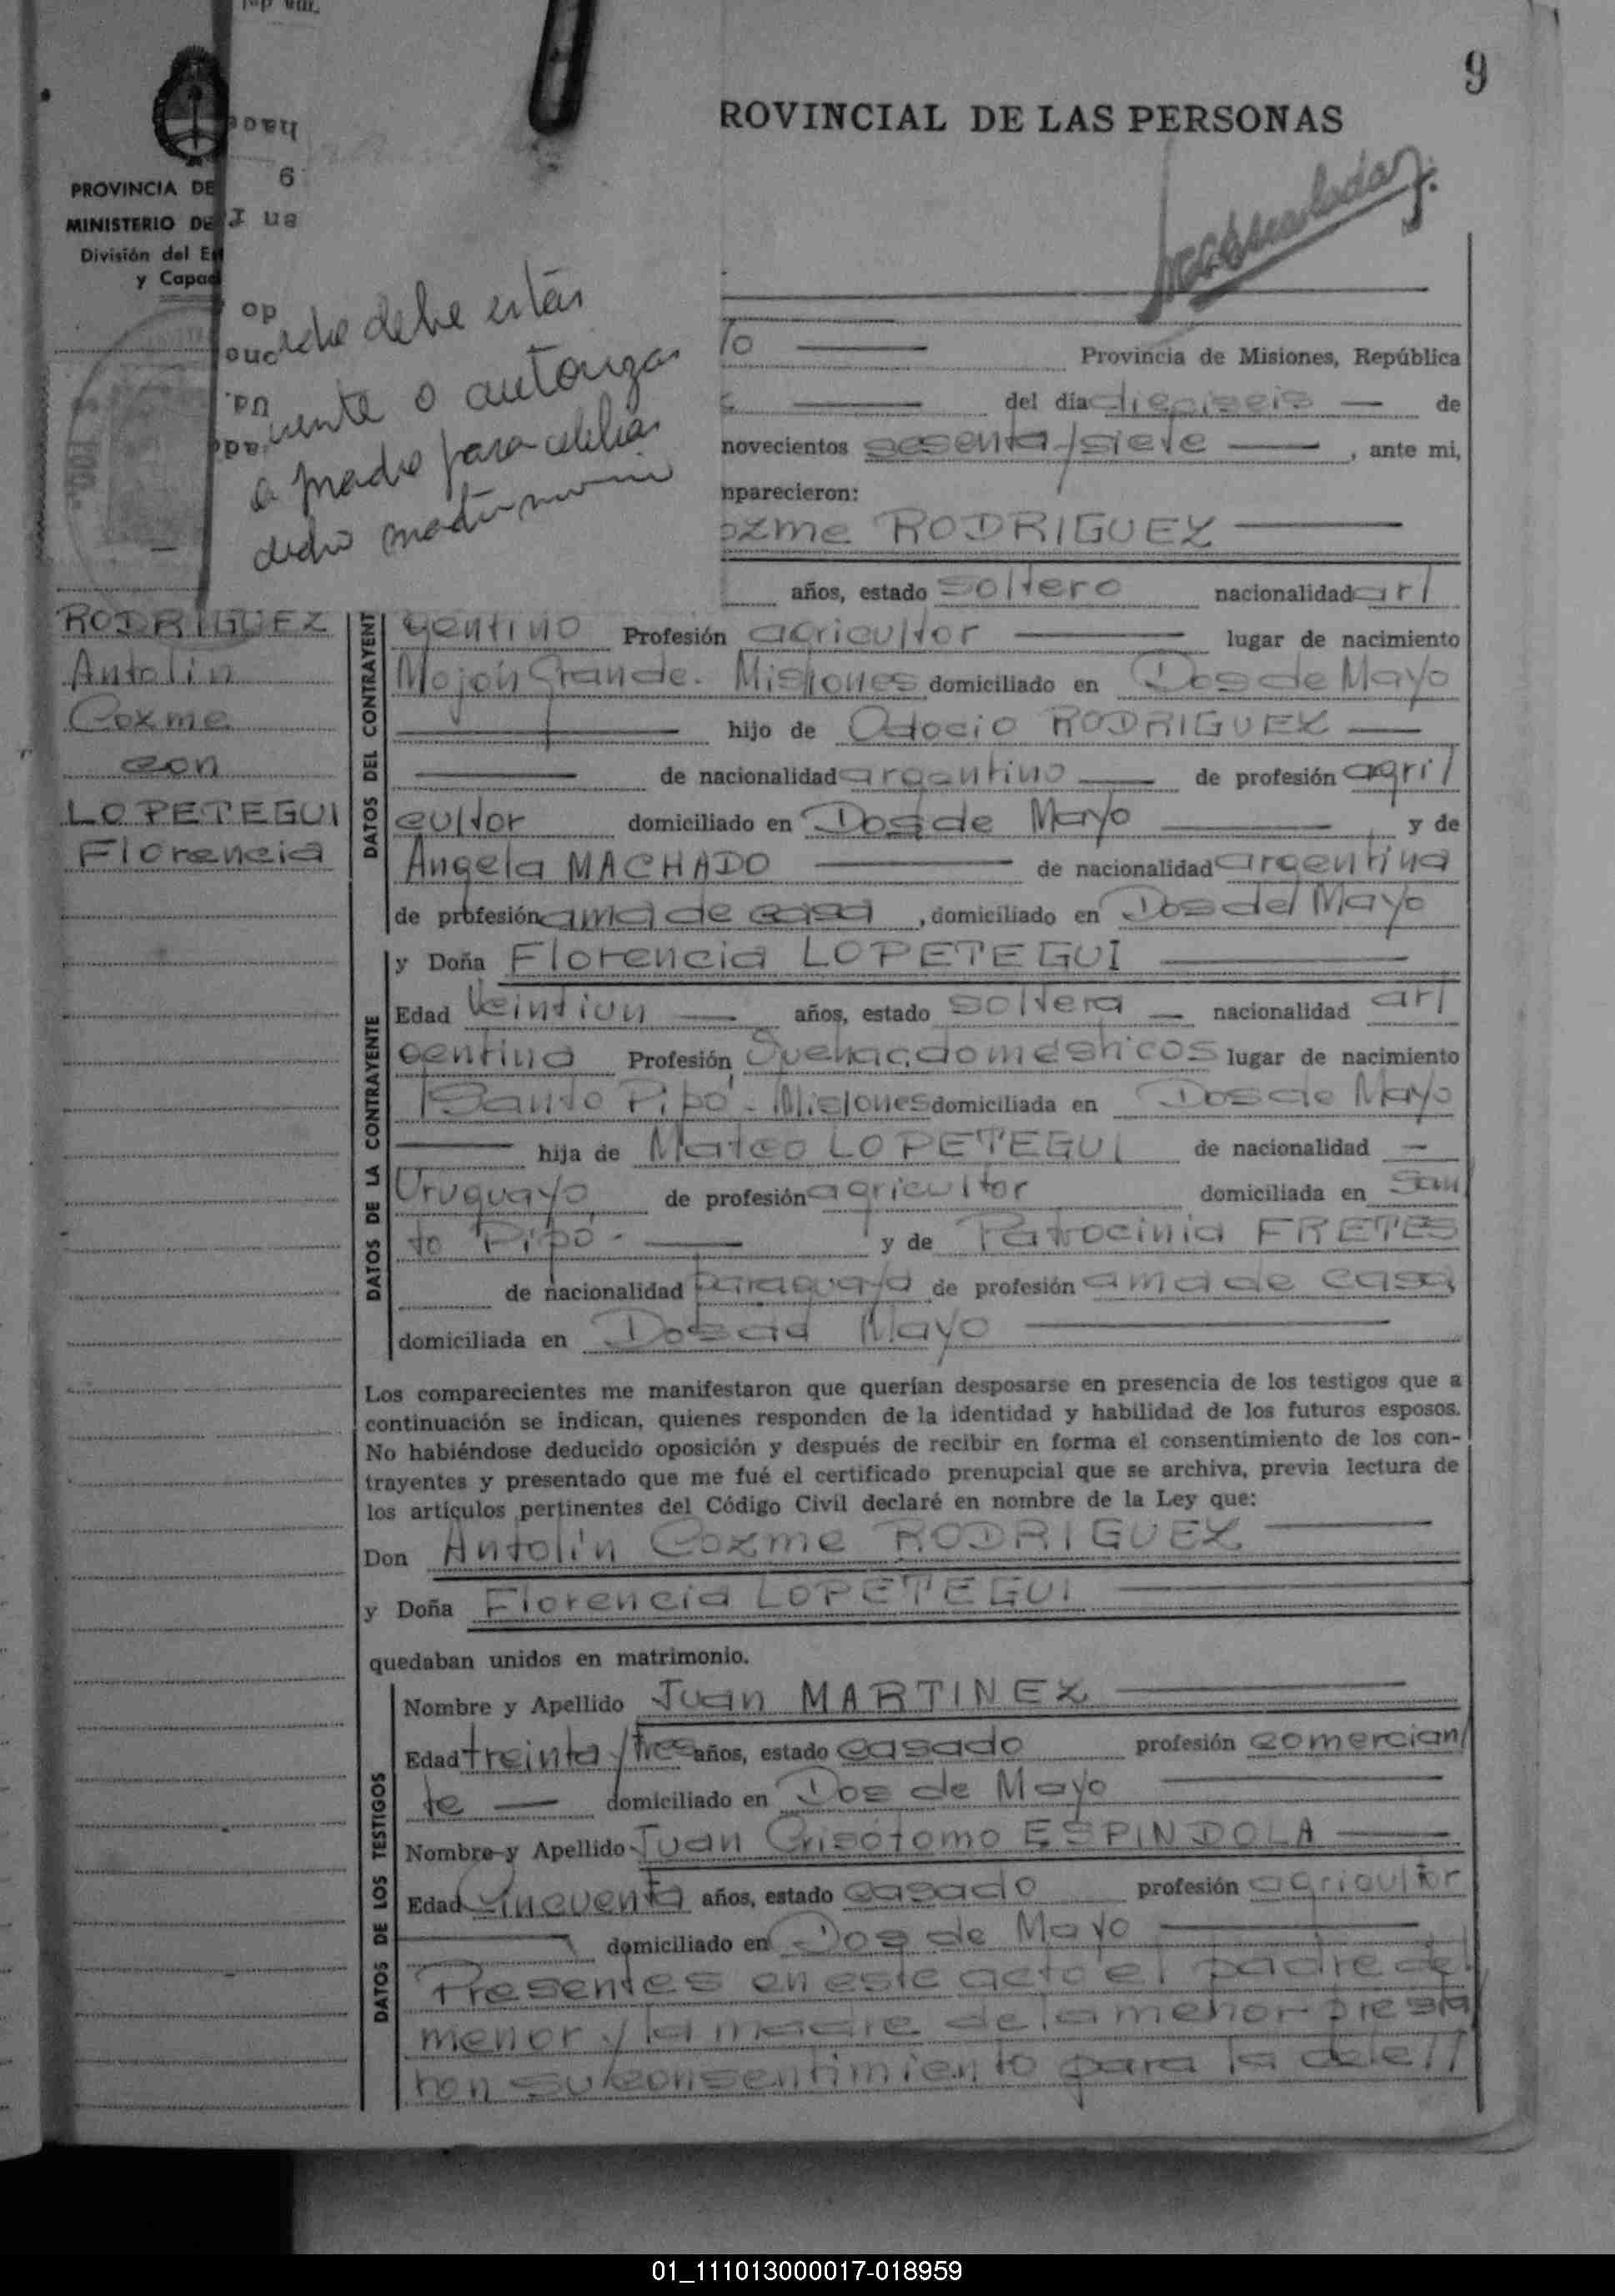 9
ROVINCIAL DE LAS PERSONAS
PROVINCIA DE
MINISTERIO DE
División del E
y Capac
debe estar
o autorizar
a madre para celebrar
dicho matrimonio
To Provincia de Misiones, República
del día dieciseis de
novecientos sesenta y siete , ante mi,
nparecieron:
ozme RODRIGUEZ
años, estado soltero nacionalidad ar/
RODRIGUEZ
Antolin
Cozme
con
LOPETEGUI
Florencia
DATOS DEL CONTRAYENT
gentino Profesión agricultor lugar de nacimiento
Mojón Grande. Misiones domiciliado en Dos de Mayo
hijo de RODRIGUEZ
de nacionalidad argentino de profesión agri/
cultor domiciliado en Dos de Mayo y de
Angela MACHADO de nacionalidad argentina
de profesión ama de casa , domiciliado en Dos de Mayo
DATOS DE LA CONTRAYENTE
y Doña Florencia LOPETEGUI
Edad Veintiun años, estado soltera nacionalidad ar/
gentina Profesión domésticos lugar de nacimiento
Santo Pipó - Misiones domiciliada en Dos de Mayo
hija de Mateo LOPETEGUI de nacionalidad
Uruguayo de profesión agricultor domiciliada en San
to Pipó - y de Patrocinia FRETES
de nacionalidad paraguaya de profesión ama de casa
domiciliada en Mayo
Los comparecientes me manifestaron que querían desposarse en presencia de los testigos que a
continuación se indican, quienes responden de la identidad y habilidad de los futuros esposos.
No habiéndose deducido oposición y después de recibir en forma el consentimiento de los con-
trayentes y presentado que me fué el certificado prenupcial que se archiva, previa lectura de
los artículos pertinentes del Código Civil declaré en nombre de la Ley que:
Don Antolín Cozme RODRIGUEZ
y Doña Florencia LOPETEGUI
quedaban unidos en matrimonio.
DATOS DE LOS TESTIGOS
Nombre y Apellido Juan MARTINEZ
Edad treinta y tres años, estado casado profesión comercian/
te domiciliado en Dos de Mayo
Nombre y Apellido Juan Crisótomo ESPINDOLA
Edad Cincuenta años, estado casado profesión agricultor
domiciliado en Dos de Mayo
Presentes en este acto el padre del
menor y la madre de la menor presta
ron su consentimiento para la
01_111013000017-018959